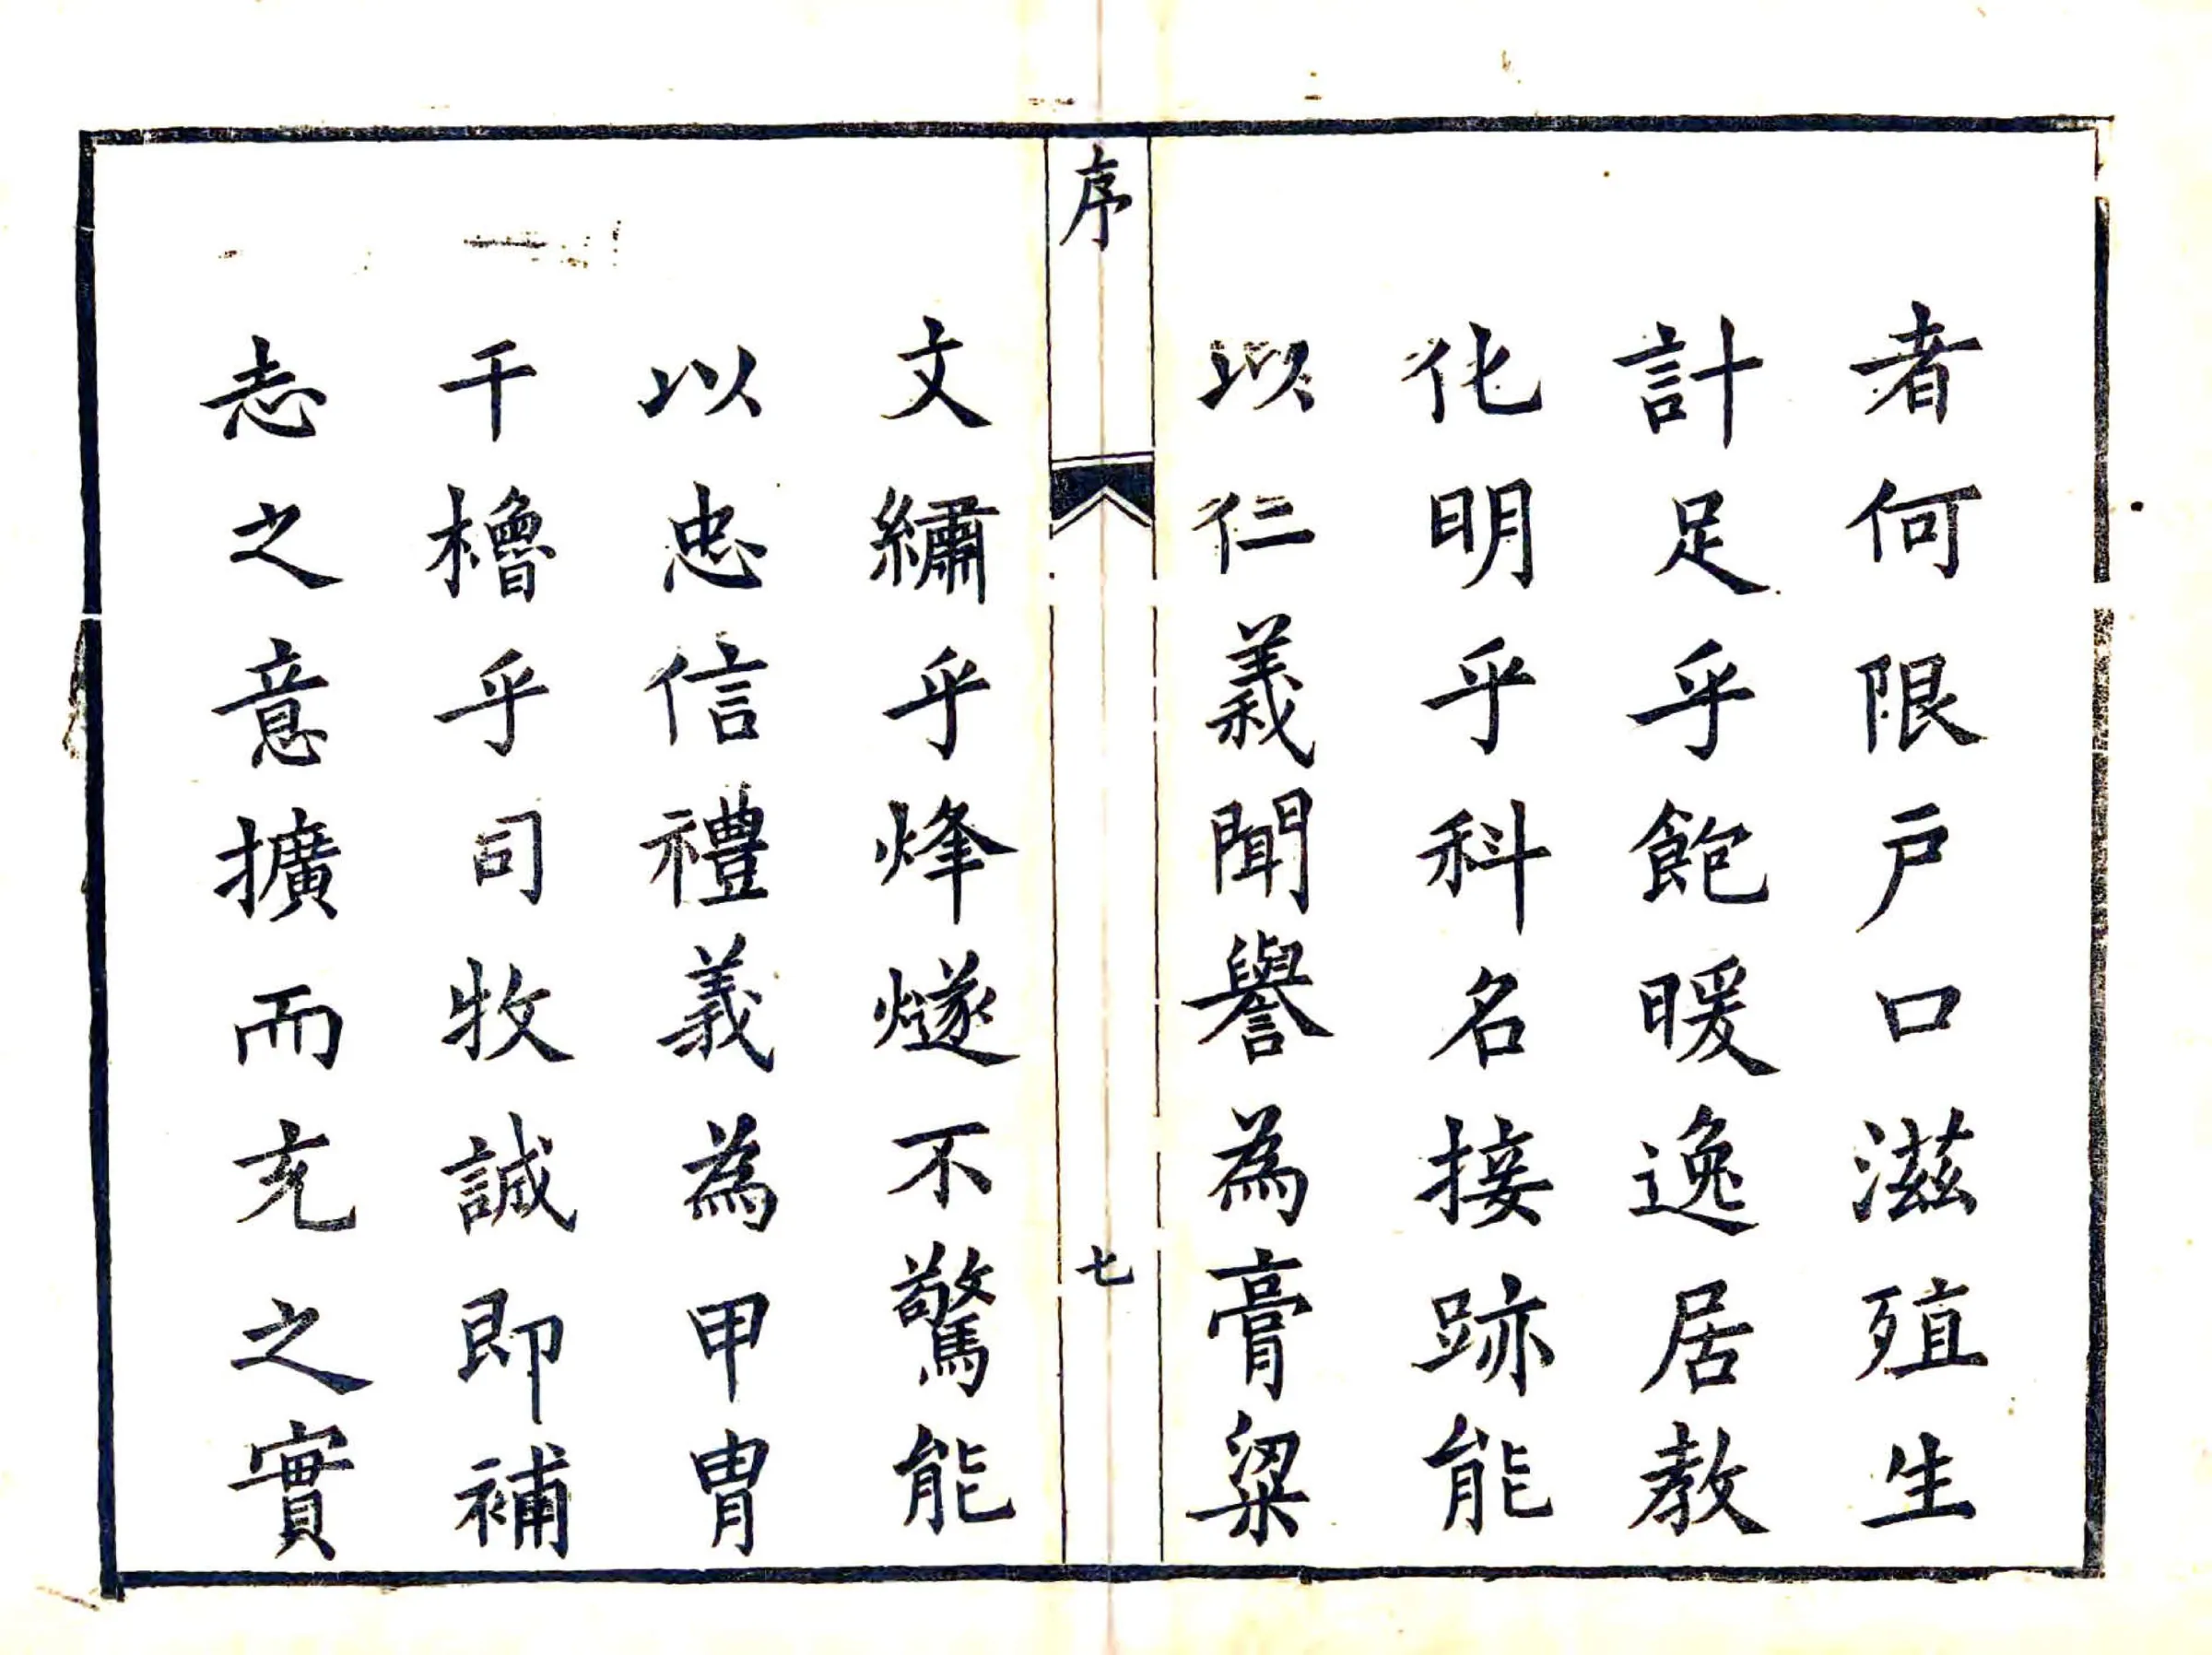 者何限戶口滋殖生
計足乎飽暖逸居教
化明乎科名接跡能
以仁義聞譽為膏粱
序
七
文繡乎烽燧不驚能
以忠信禮義為甲冑
干櫓乎司牧誠即補
志之意擴而充之實